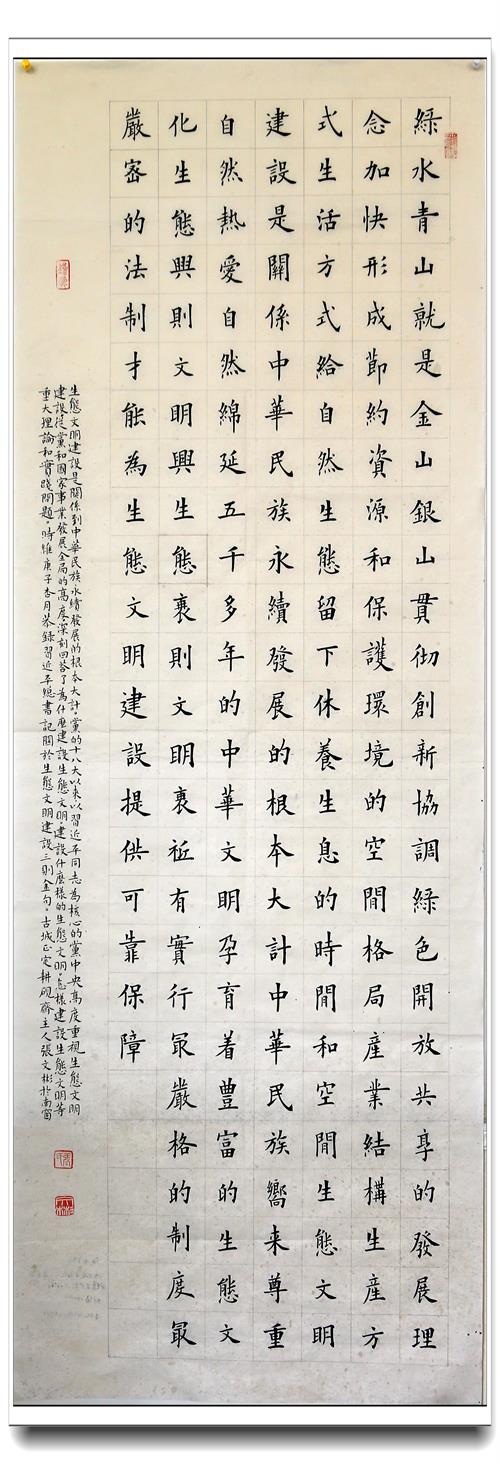 綠水青山就是金山銀山貫彻創新協調綠色開放共享的發展理
念加快形成節約資源和保護環境的空間格局產業結構生產方
式生活方式給自然生態留下休養生息的時間和空間生態文明
建設是關係中華民族永續發展的根本大計中華民族嚮来尊重
自然熱愛自然綿延五千多年的中華文明孕育着豊富的生態文
化生態興則文明興生態衰則文明衰祗有實行冣嚴格的制度冣
嚴密的法制才能為生態文明建設提供可靠保障
生態文明建設是關係到中華民族永續發展的根本大計。黨的十八大以来以習近平同志為核心的黨中央高度重視生態文明
建設從黨和國家事業發展全局的高度深刻回答了為什麼建設生態文明。建設什麼樣的生態文明。怎樣建設生態文明等
重大理論和實踐問題。時維庚子杏月恭錄習近平總書記關於生態文明建設三則金句。古城正定耕硯齋主人張文彬於南窗